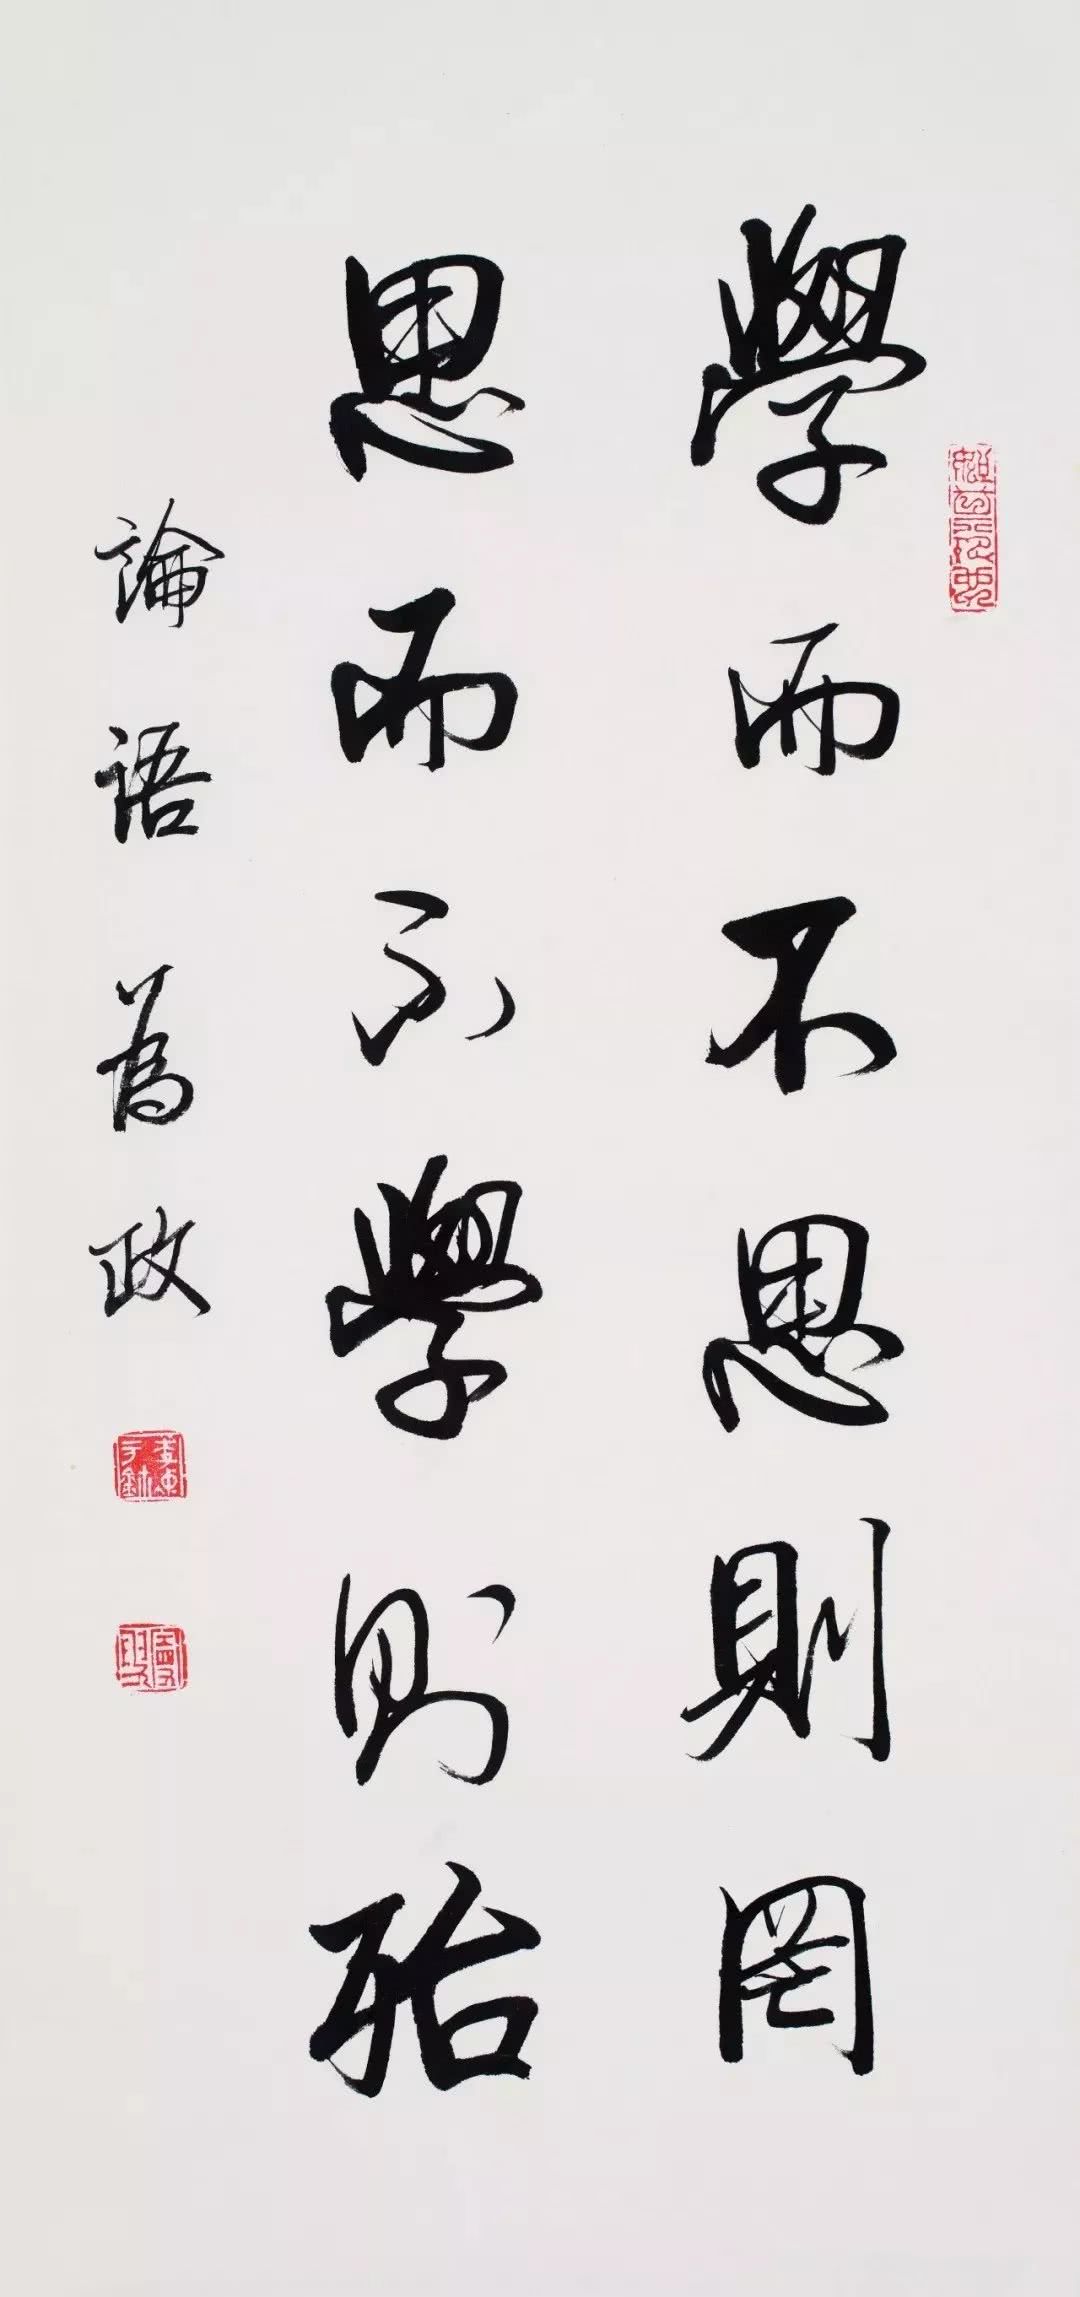 學而不思則罔
思而不學則殆
論語為政